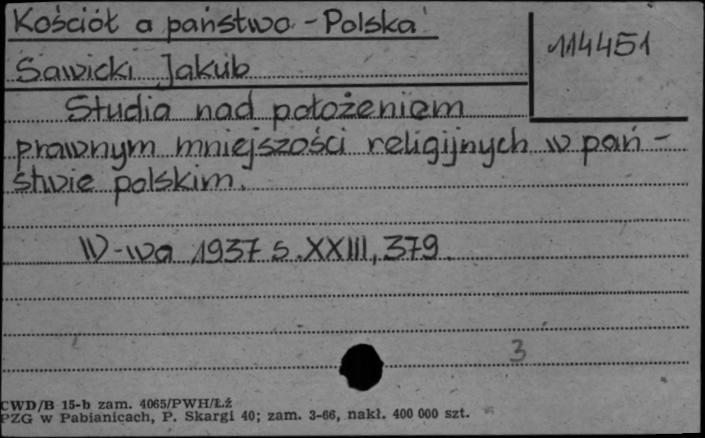 Kościół a państwo - Polska
114451
Sawicki Jakub
Studia nad położeniem
prawnym mniejszości religijnych w pań-
stwie polskim.
W-wa 1937 s. XXIII, 379.
3
CWD/B 15-b zam. 4065/PWH/Łź
PZG w Pabianicach, P. Skargi 40; zam. 3-66, nakł. 400 000 szt.